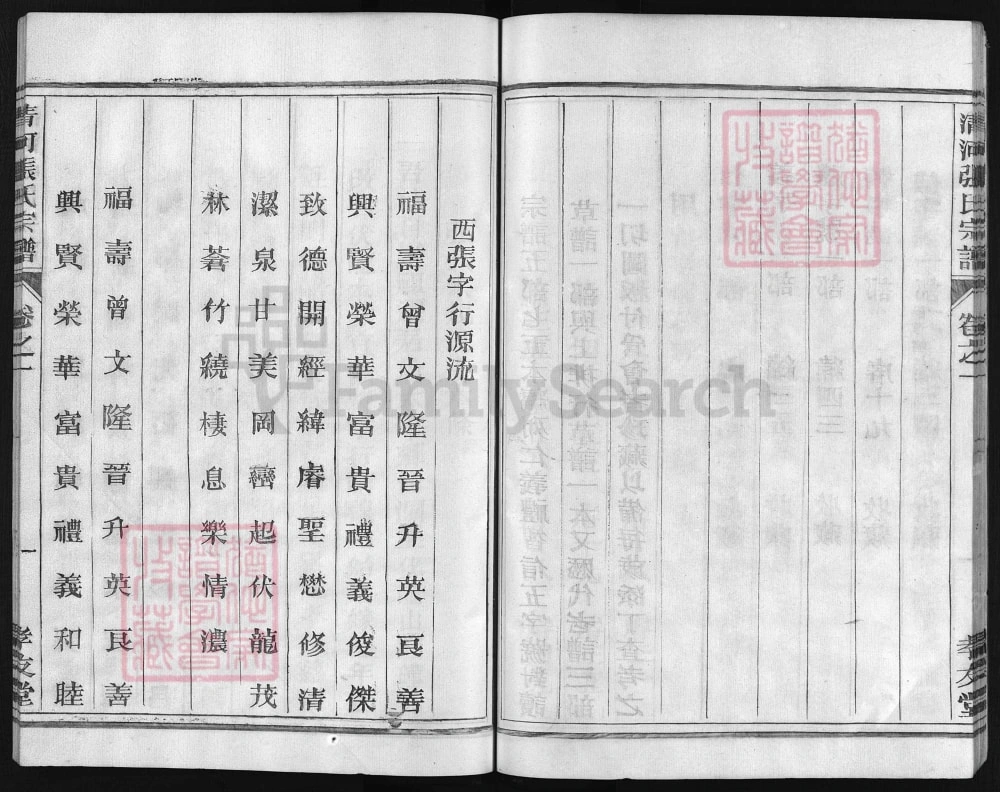 清河張氏宗譜
卷之一
孝友堂
西張字行源流
福壽曾文隆晉升英良善
興賢榮華富貴禮義俊傑
致德開經緯睿聖懋修清
潔泉甘美岡巒起伏龍茂
林蒼竹繞棲息樂情濃
福壽曾文隆晉升英良善
興賢榮華富貴禮義和睦
清河張氏宗譜
卷之一
一
孝友堂
FamilySearch